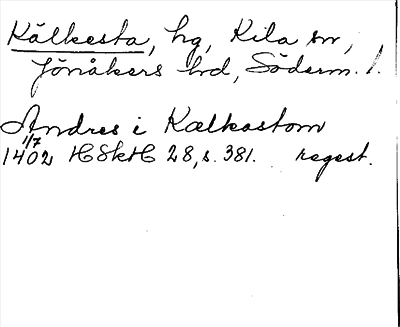 Kälkesta, hg, Kila sn,
Jönåkers hd, Söderm. l.
Andres i Kælkastom
1/7
1402 HSkH 28, s. 381. regest.